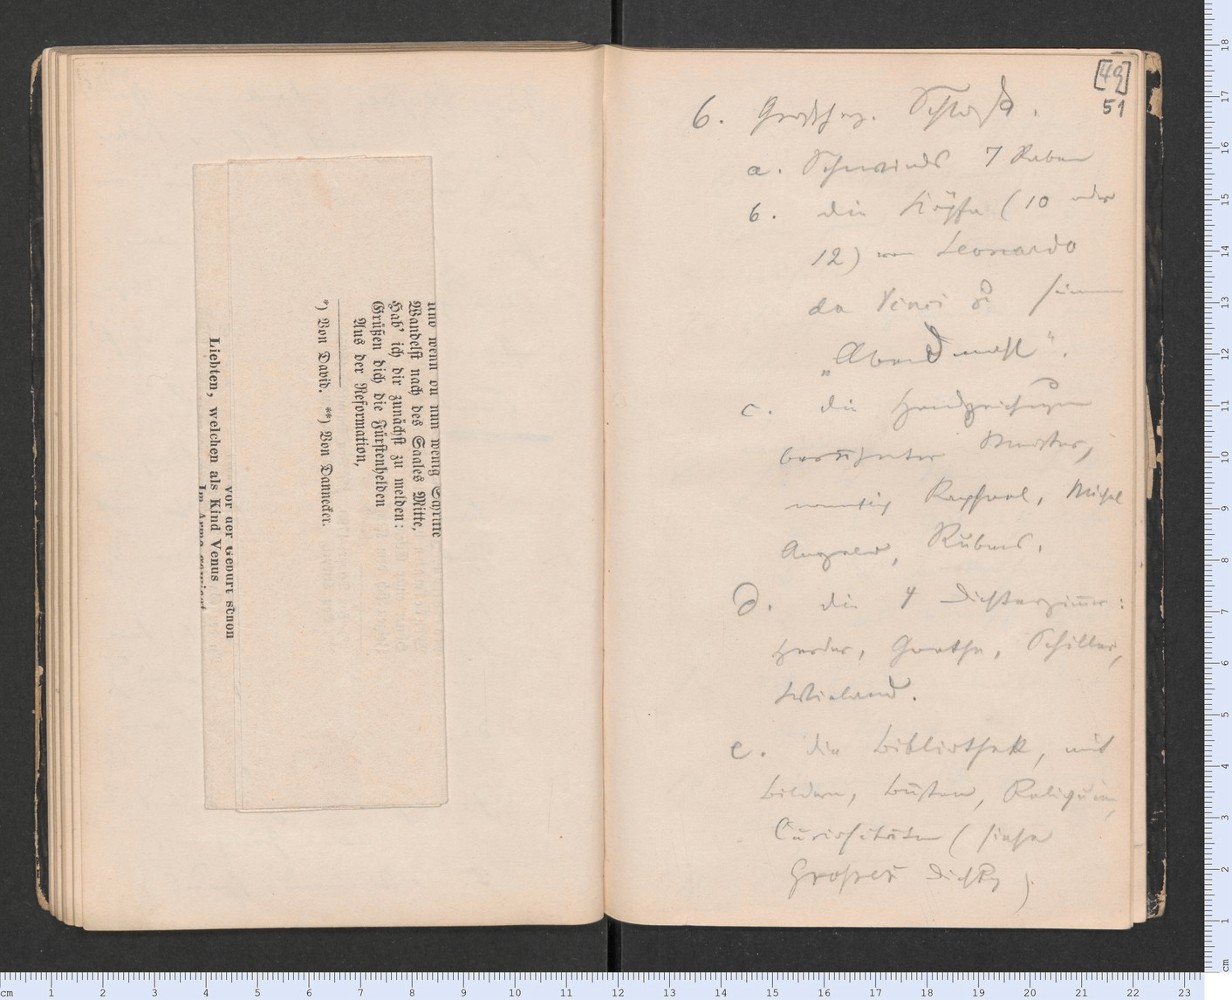 und wenn du nun wenig Schritte
Wandelst nach des Saales Mitte,
Hab' ich dir zunächst zu melden:
Grüßen dich die Fürstenhelden
Aus der Reformation,
*) Von David. **) Von Dannecker.
vor der Geburt schon
Liebten, welchen als Kind Venus
Im Arme gewiegt
[49]
51
6. Großherz. Schloß.
a. Schwinds 7 Raben
b. die Köpfe (10 oder
12) von Leonardo
da Vinci
„Abendmahl".
c. die Handzeichnungen
berühmter Meister,
namentlich Raphael, Michel
Angelo, Rubens.
d. die 4 Dichterzimmer:
Herder, Goethe, Schiller,
Wieland.
e. die Bibliothek, mit
Bildern, Büsten, Reliquien,
Curiositäten (siehe
)